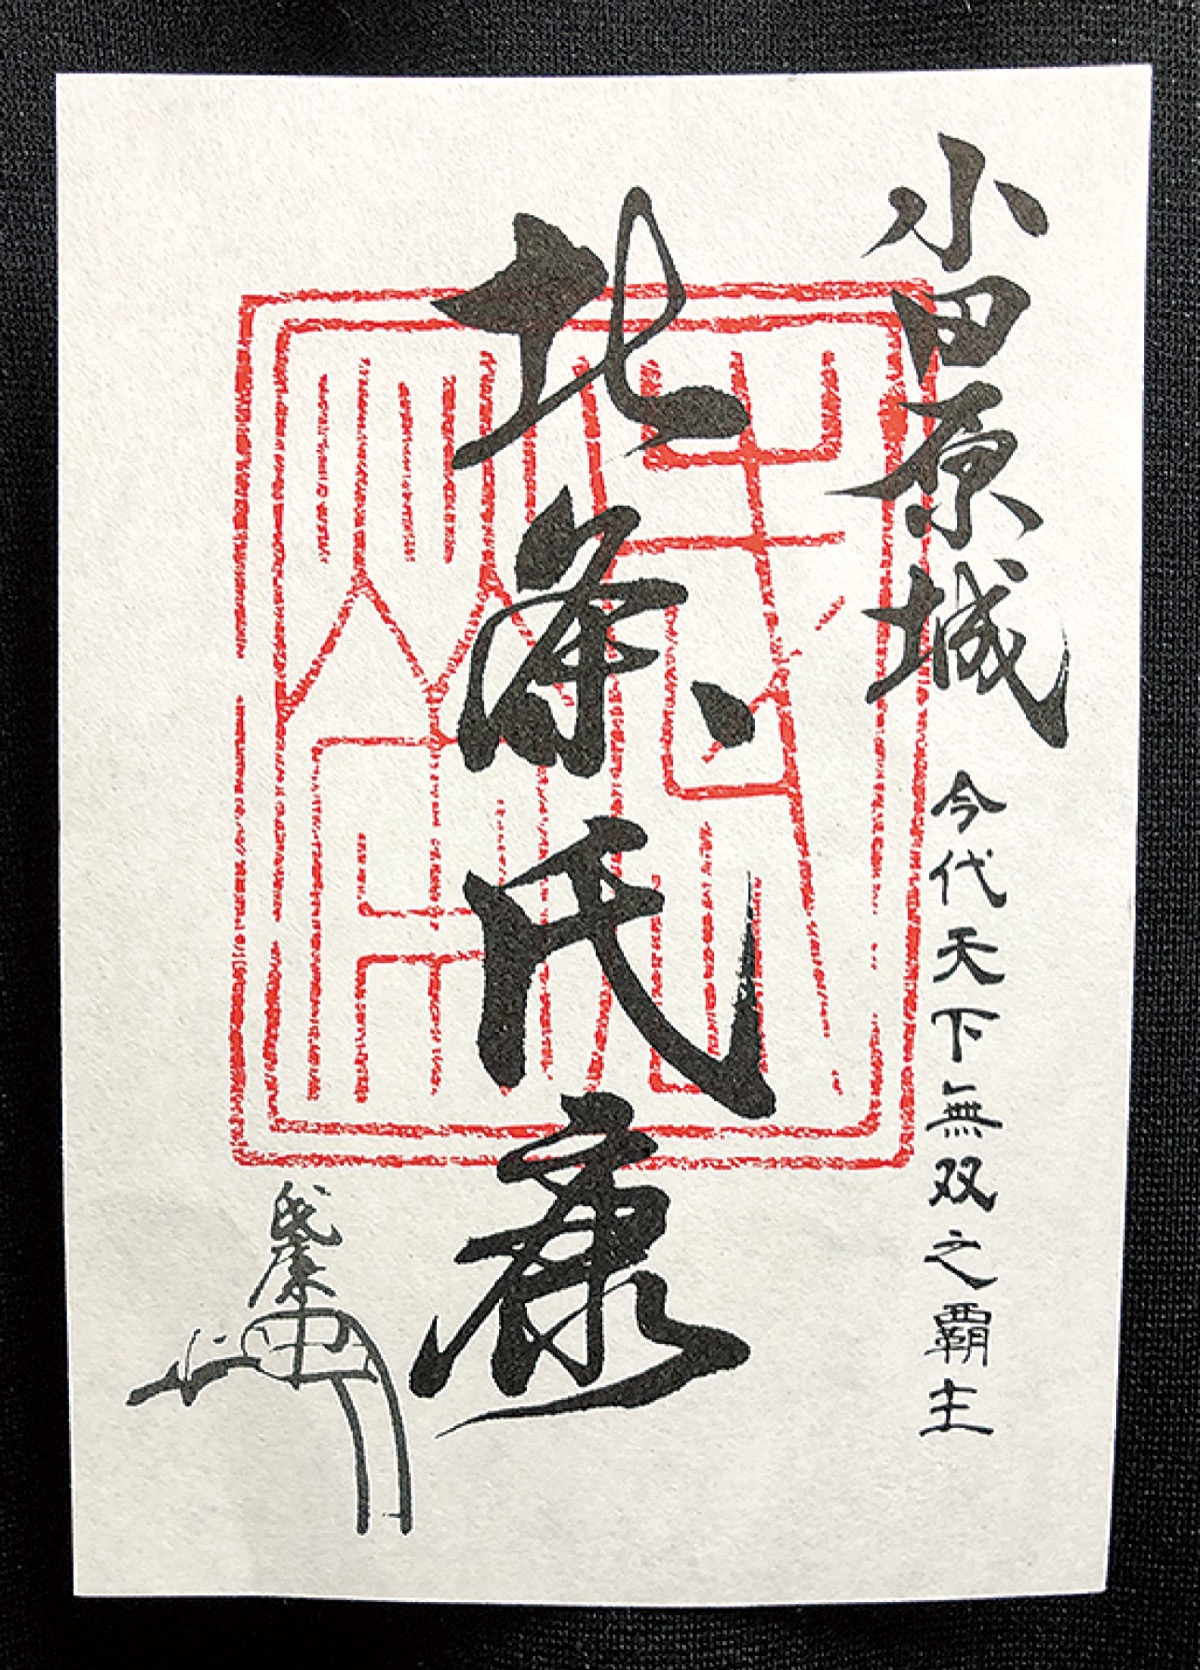 小田原城 今代天下無双之覇主
北条氏康
氏康